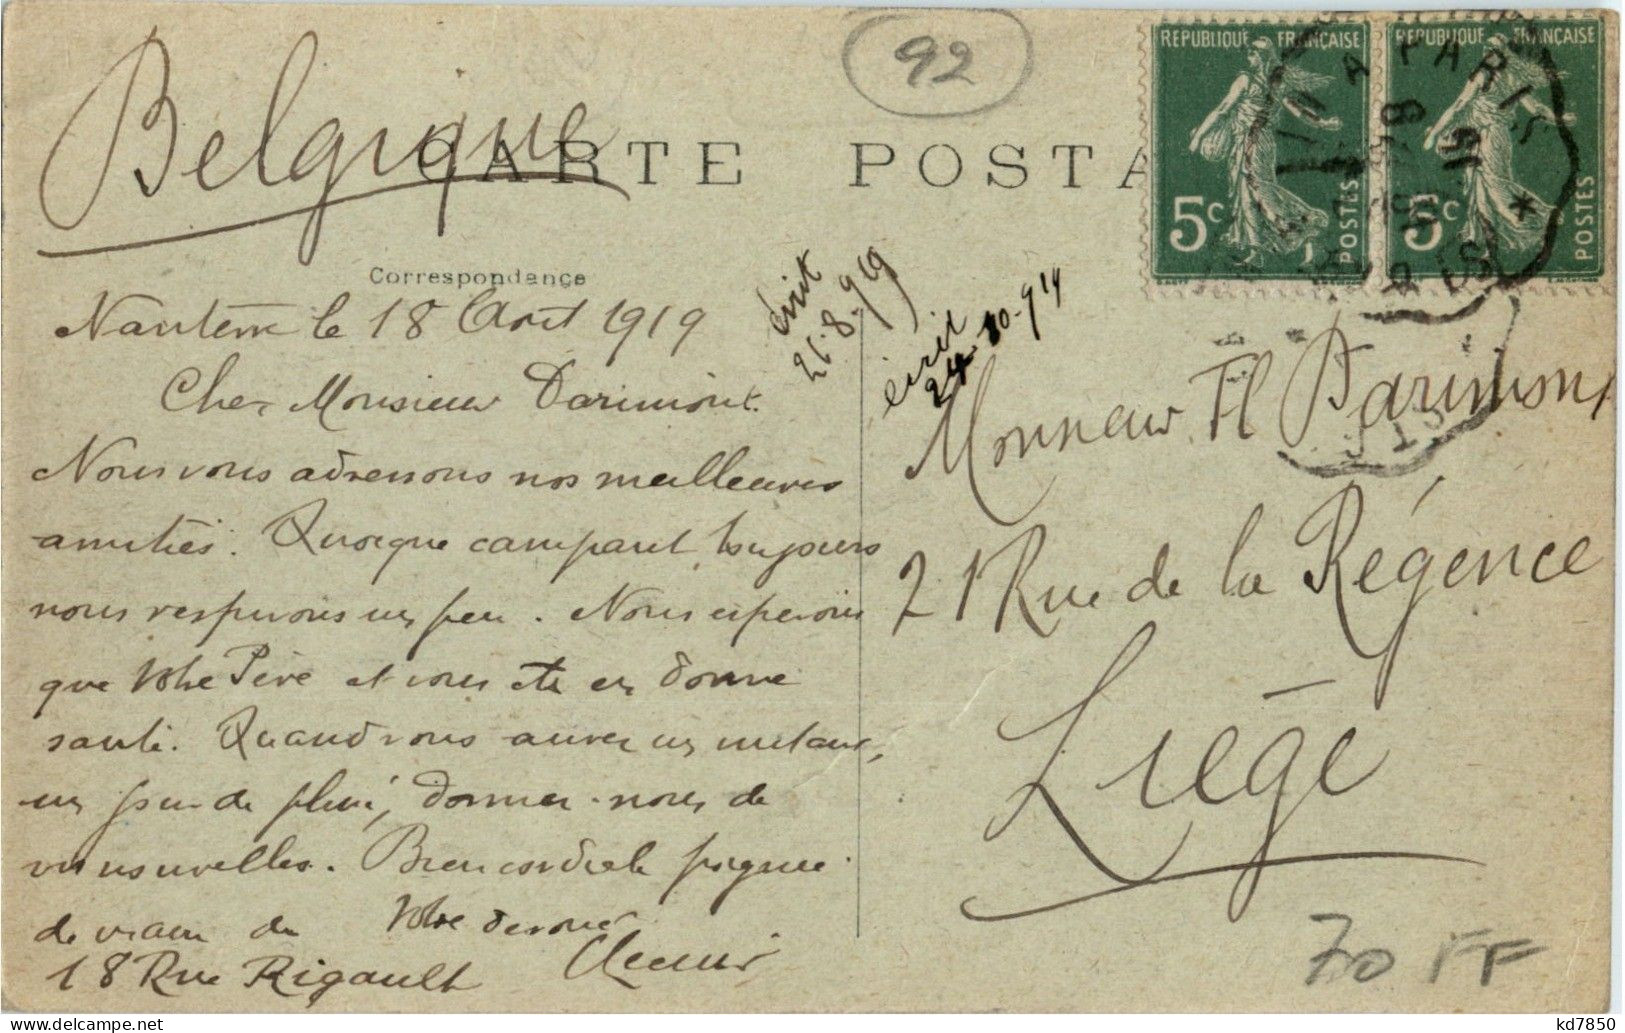 92
Belgique
CARTE POSTA
REPUBLIQUE FRANÇAISE
5c
POSTES
REPUBLIQUE FRANÇAISE
5c
POSTES
A PARIS
Correspondance
Nanterre le 18 Août 1919
écrit
26.8.919
écrit
24-10-919
Cher Monsieur Darimont.
Nous vous adressons nos meilleures
amitiés. Quoique campant toujours
nous respirons un peu. Nous esperons
que Votre Père et vous êtes en bonne
santé. Quand vous aurez un instant,
un peu de plus, donnez-nous de
vos nouvelles. Bien cordiale poignée
de mains du Votre dévoué
18 Rue Rigault
Monsieur Fl Darimont
21 Rue de la Régence
Liège
70 FF
kd7850